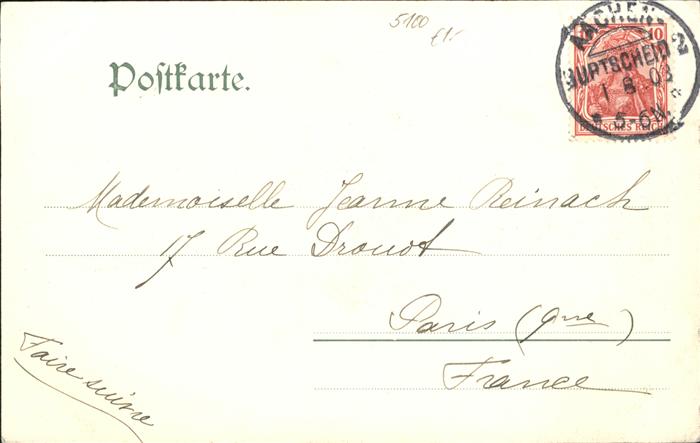 5100
£1.-
AACHEN. 2
BURTSCHEID
1 8 03
* 5-6N. a
10
DEUTSCHES REICH
Postkarte.
Mademoiselle Jeanne Reinach
17 Rue Drouot
Paris (9me)
France
Faire suivre